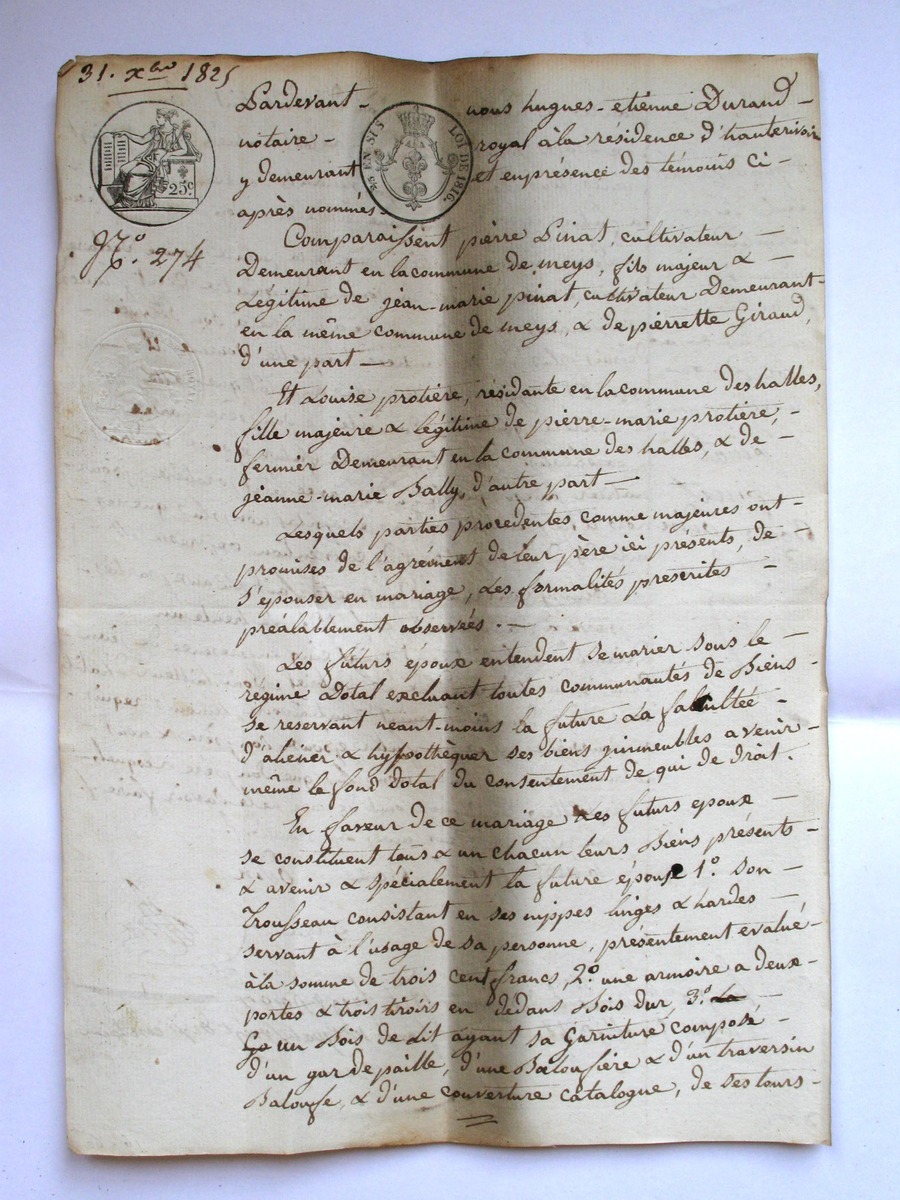 31. xbre 1825
Pardevant - nous hugues-etienne Durand -
notaire - royal à la residence d'hauterivoir
y demeurant et en présence des témoins ci -
après nommés.
25c
EN SUS
LOI DE 1816.
No. 274
Comparaissent pierre Pinat, cultivateur -
Demeurant en la commune de meys, fils majeur &
Légitime de jean-marie pinat, cultivateur Demeurant-
en la même commune de meys, & de pierrette Giraud,
d'une part -
Et Louise protière, résidante en la commune des halles,
fille majeure & légitime de pierre-marie protière, -
fermier Demeurant en la commune des halles, & de -
jeanne-marie Bally, d'autre part -
Lesquels parties procedentes comme majeures ont -
promises de l'agrément de leur père ici présents, de -
s'épouser en mariage, Les formalités prescrites -
préalablement observées. -
Les futurs époux entendent se marier sous le -
régime Dotal excluant toutes communautés de Biens -
se reservant neant-moins la future La facultée -
d'aliéner & hypothèquer ses biens immeubles avenir -
même le fond Dotal du consentement de qui de Droit.
En faveur de ce mariage Les futurs epoux -
se constituent tous & un chacun leurs Biens présents -
& avenir & spécialement la future épouse 1o. son -
Trousseau consistant en ses nippes linges & hardes -
servant à l'usage de sa personne, présentement evalué -
à la somme de trois cent francs, 2o. une armoire a deux -
portes & trois tiroirs en dedans Bois dur, 3o. La -
un Bois de Lit ayant sa Garniture composé -
d'un gar de paille, d'une Baloufière & d'un traversin
Baloufe, & d'une couverture catalogne, de ses tours -